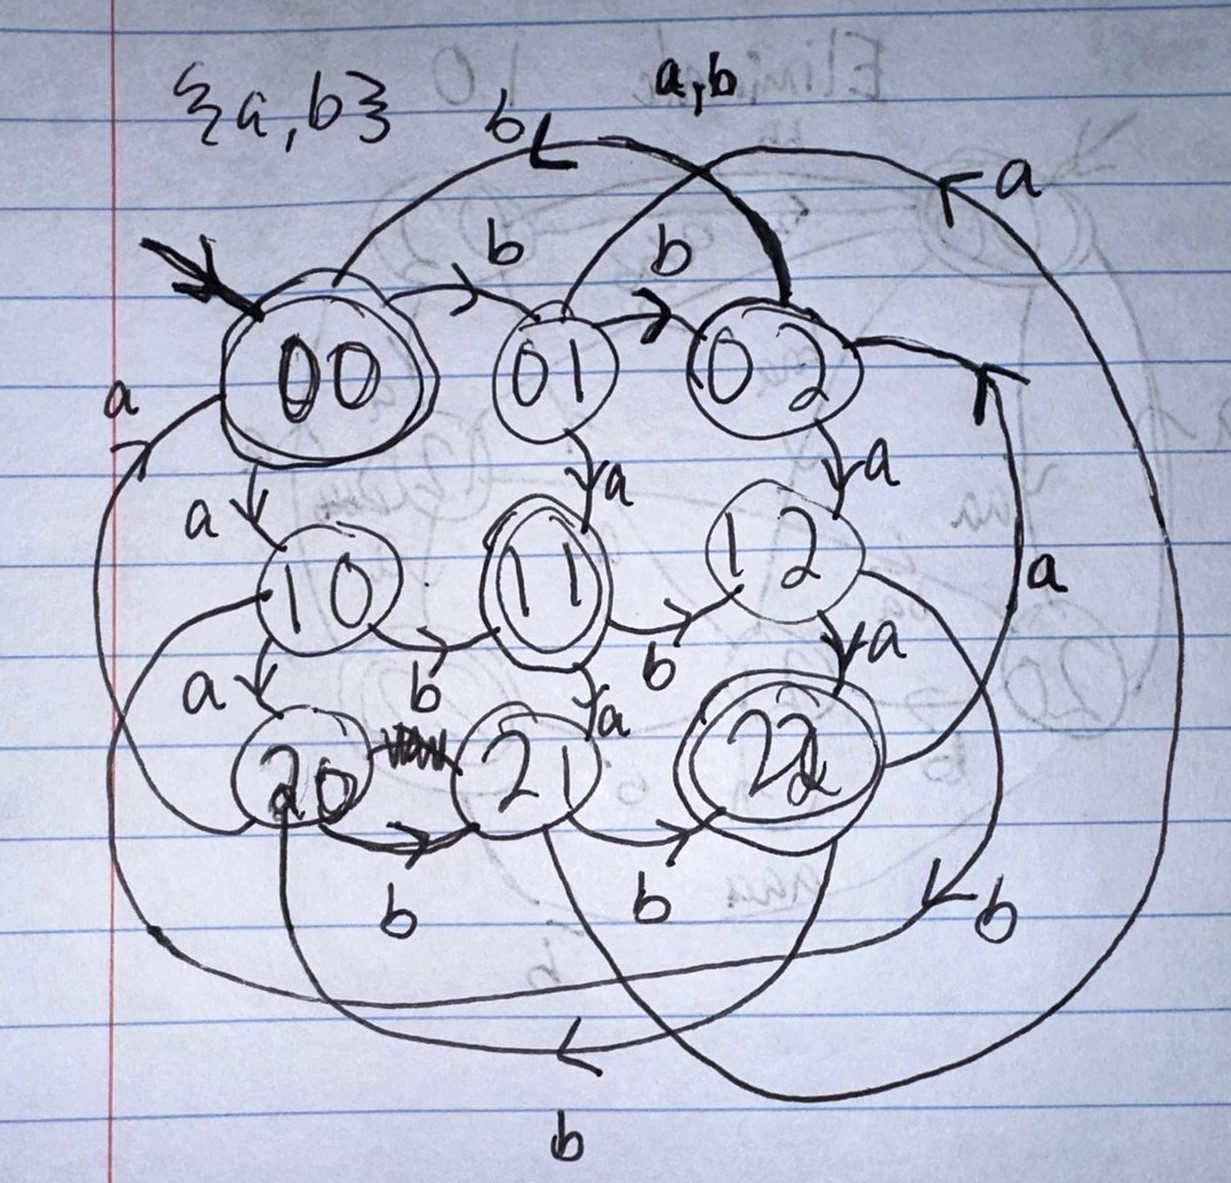 {a,b}
b
a,b
a
b
b
00
01
02
a
a
a
a
10
11
12
a
a
b
b
a
a
20
21
22
b
b
b
b